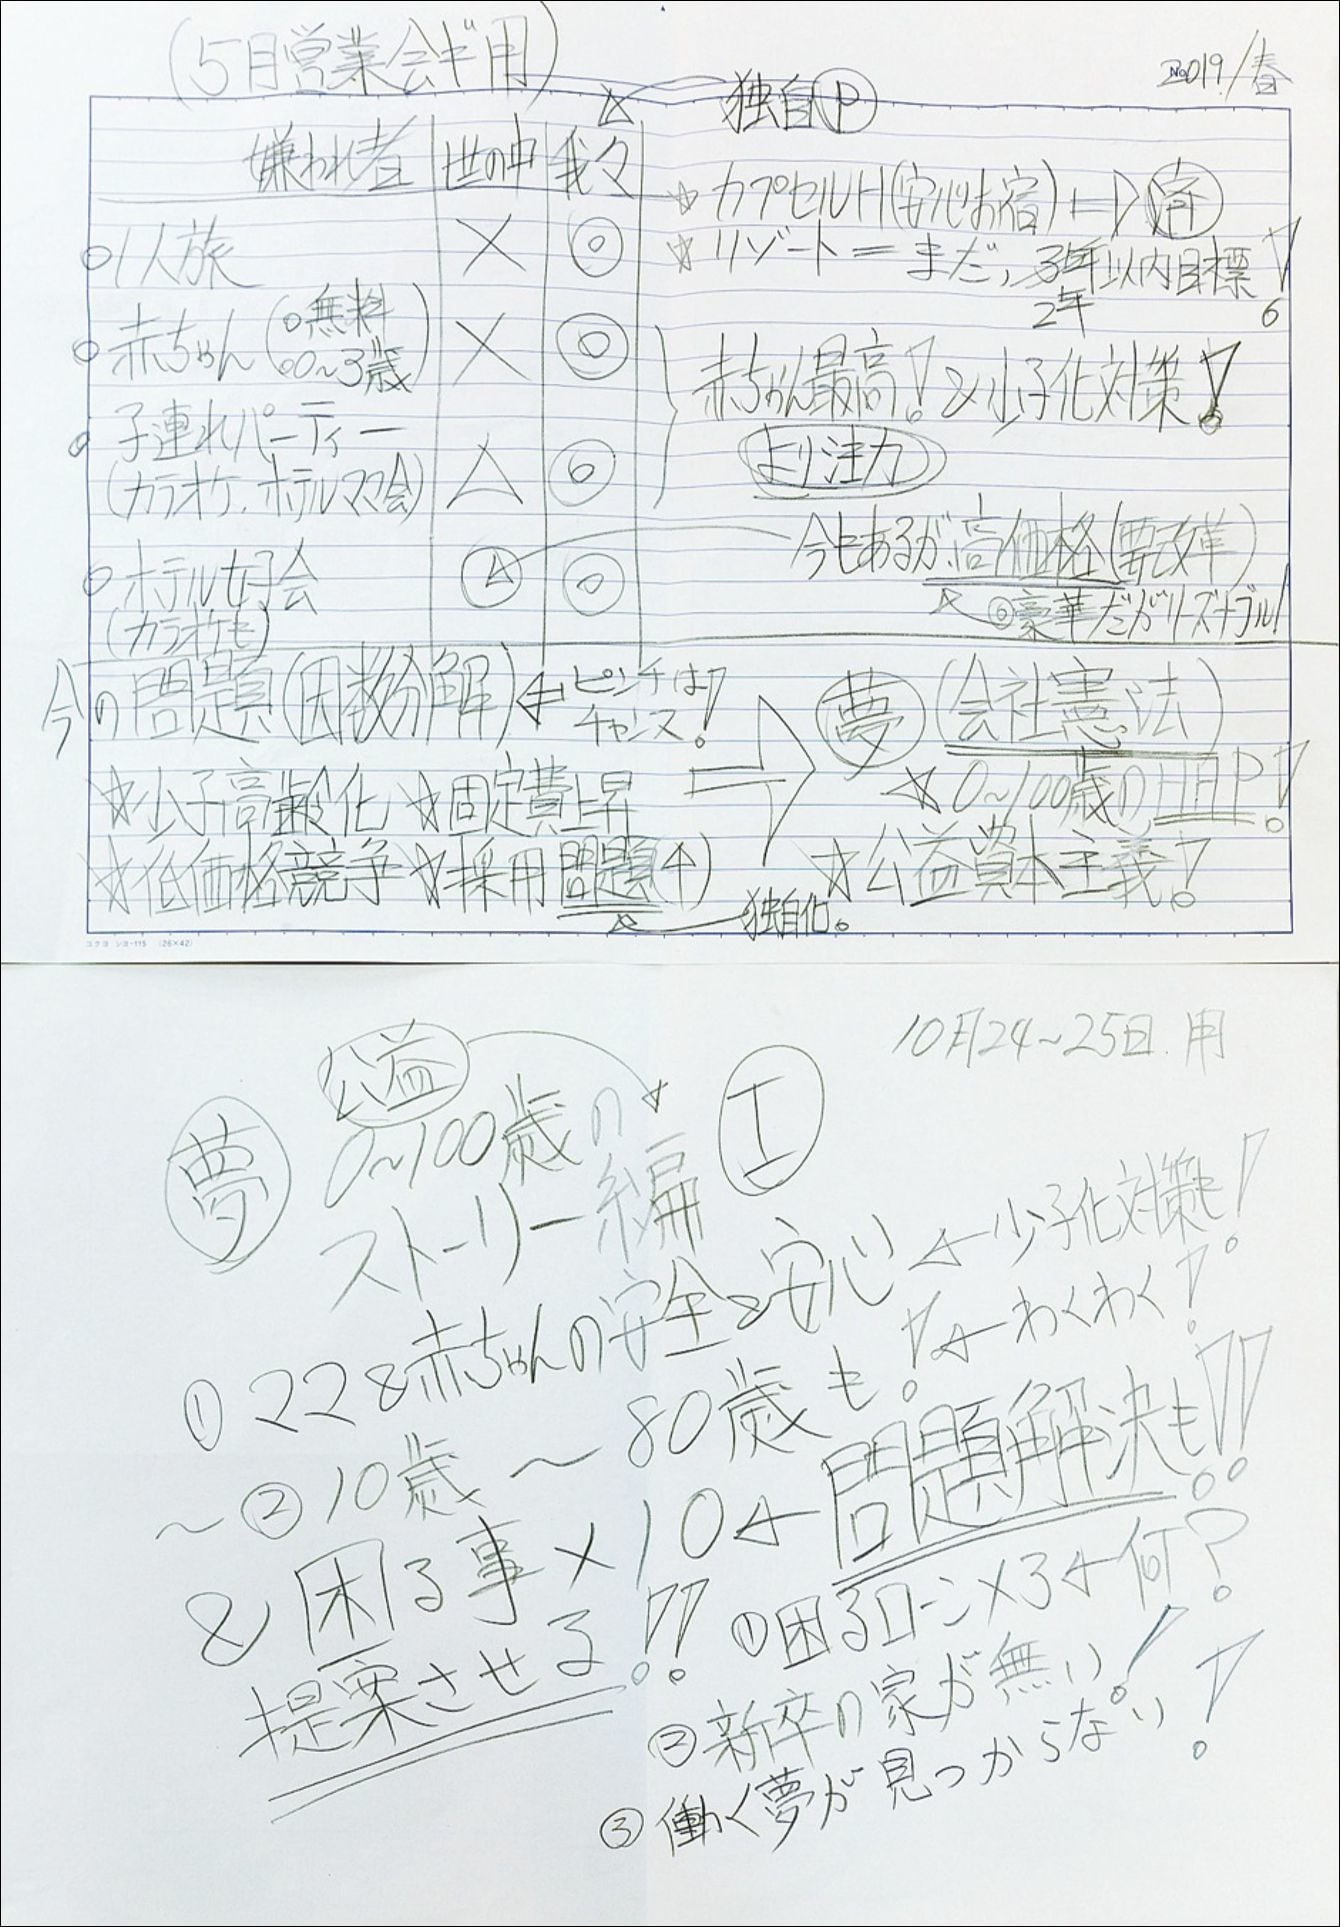 (5月営業会ギ用)
2019/春
独自P
嫌われ者 世の中 我々
☆カプセルH(安心お宿)⇔斉
○1人旅 × ◎
☆リゾート=まだ,3年以内目標!
2年
○赤ちゃん(○無料 × ◎
○0~3歳)
赤ちゃん最高!&少子化対策!
より注力
○子連れパーティー
(カラオケ.ホテルママ会) △ ◎
今もあるが高価格(要改革)
◎豪華だがリーズナブル!
○ホテル女子会 △ ◎
(カラオケも)
今の問題(因数分解)←ピンチは
チャンス!
⇒夢(会社憲法)
☆少子高齢化☆固定費上昇
☆0~100歳のHAP!
☆低価格競争☆採用問題(↑)
☆公益資本主義!
独自化。
コクヨ シヨ-115 (26×42)
10月24~25日.用
公益
夢 0~100歳の I
ストーリー編
①ママ&赤ちゃんの安全&安心←少子化対策も!
~②10歳~80歳も!←わくわく!
&困る事×10←問題解決も!!
提案させる!!
①困るローン×3←何?
②新卒の家が無い!
③働く夢が見つからない!